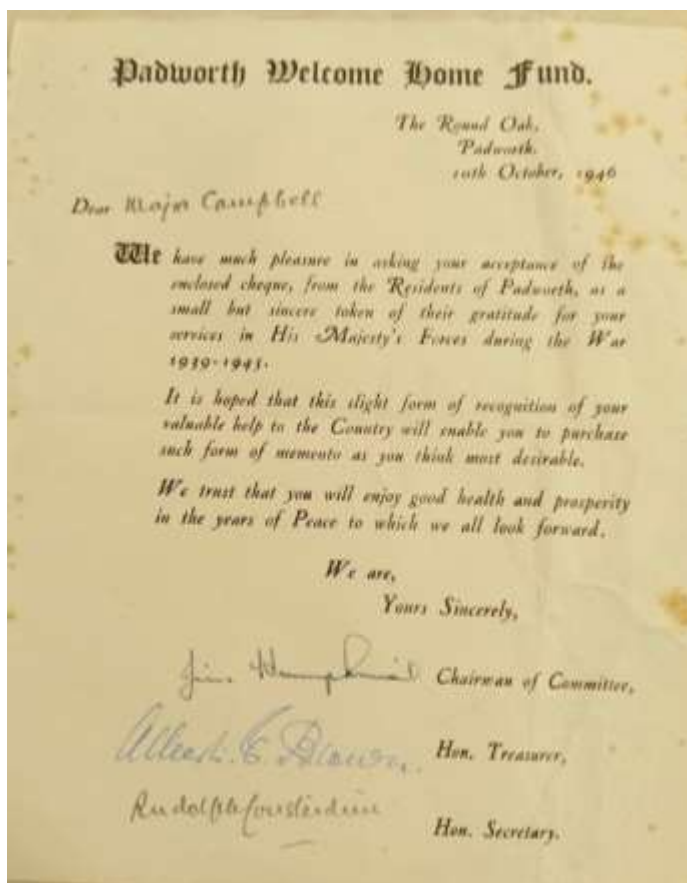 Padworth Welcome Home Fund.
The Round Oak,
Padworth.
10th October, 1946
Dear Major Campbell
We have much pleasure in asking your acceptance of the
enclosed cheque, from the Residents of Padworth, as a
small but sincere token of their gratitude for your
services in His Majesty's Forces during the War
1939-1945.
It is hoped that this slight form of recognition of your
valuable help to the Country will enable you to purchase
such form of memento as you think most desirable.
We trust that you will enjoy good health and prosperity
in the years of Peace to which we all look forward.
We are,
Yours Sincerely,
Chairman of Committee,
Albert E Brown. Hon. Treasurer,
Rudolph Hon. Secretary.